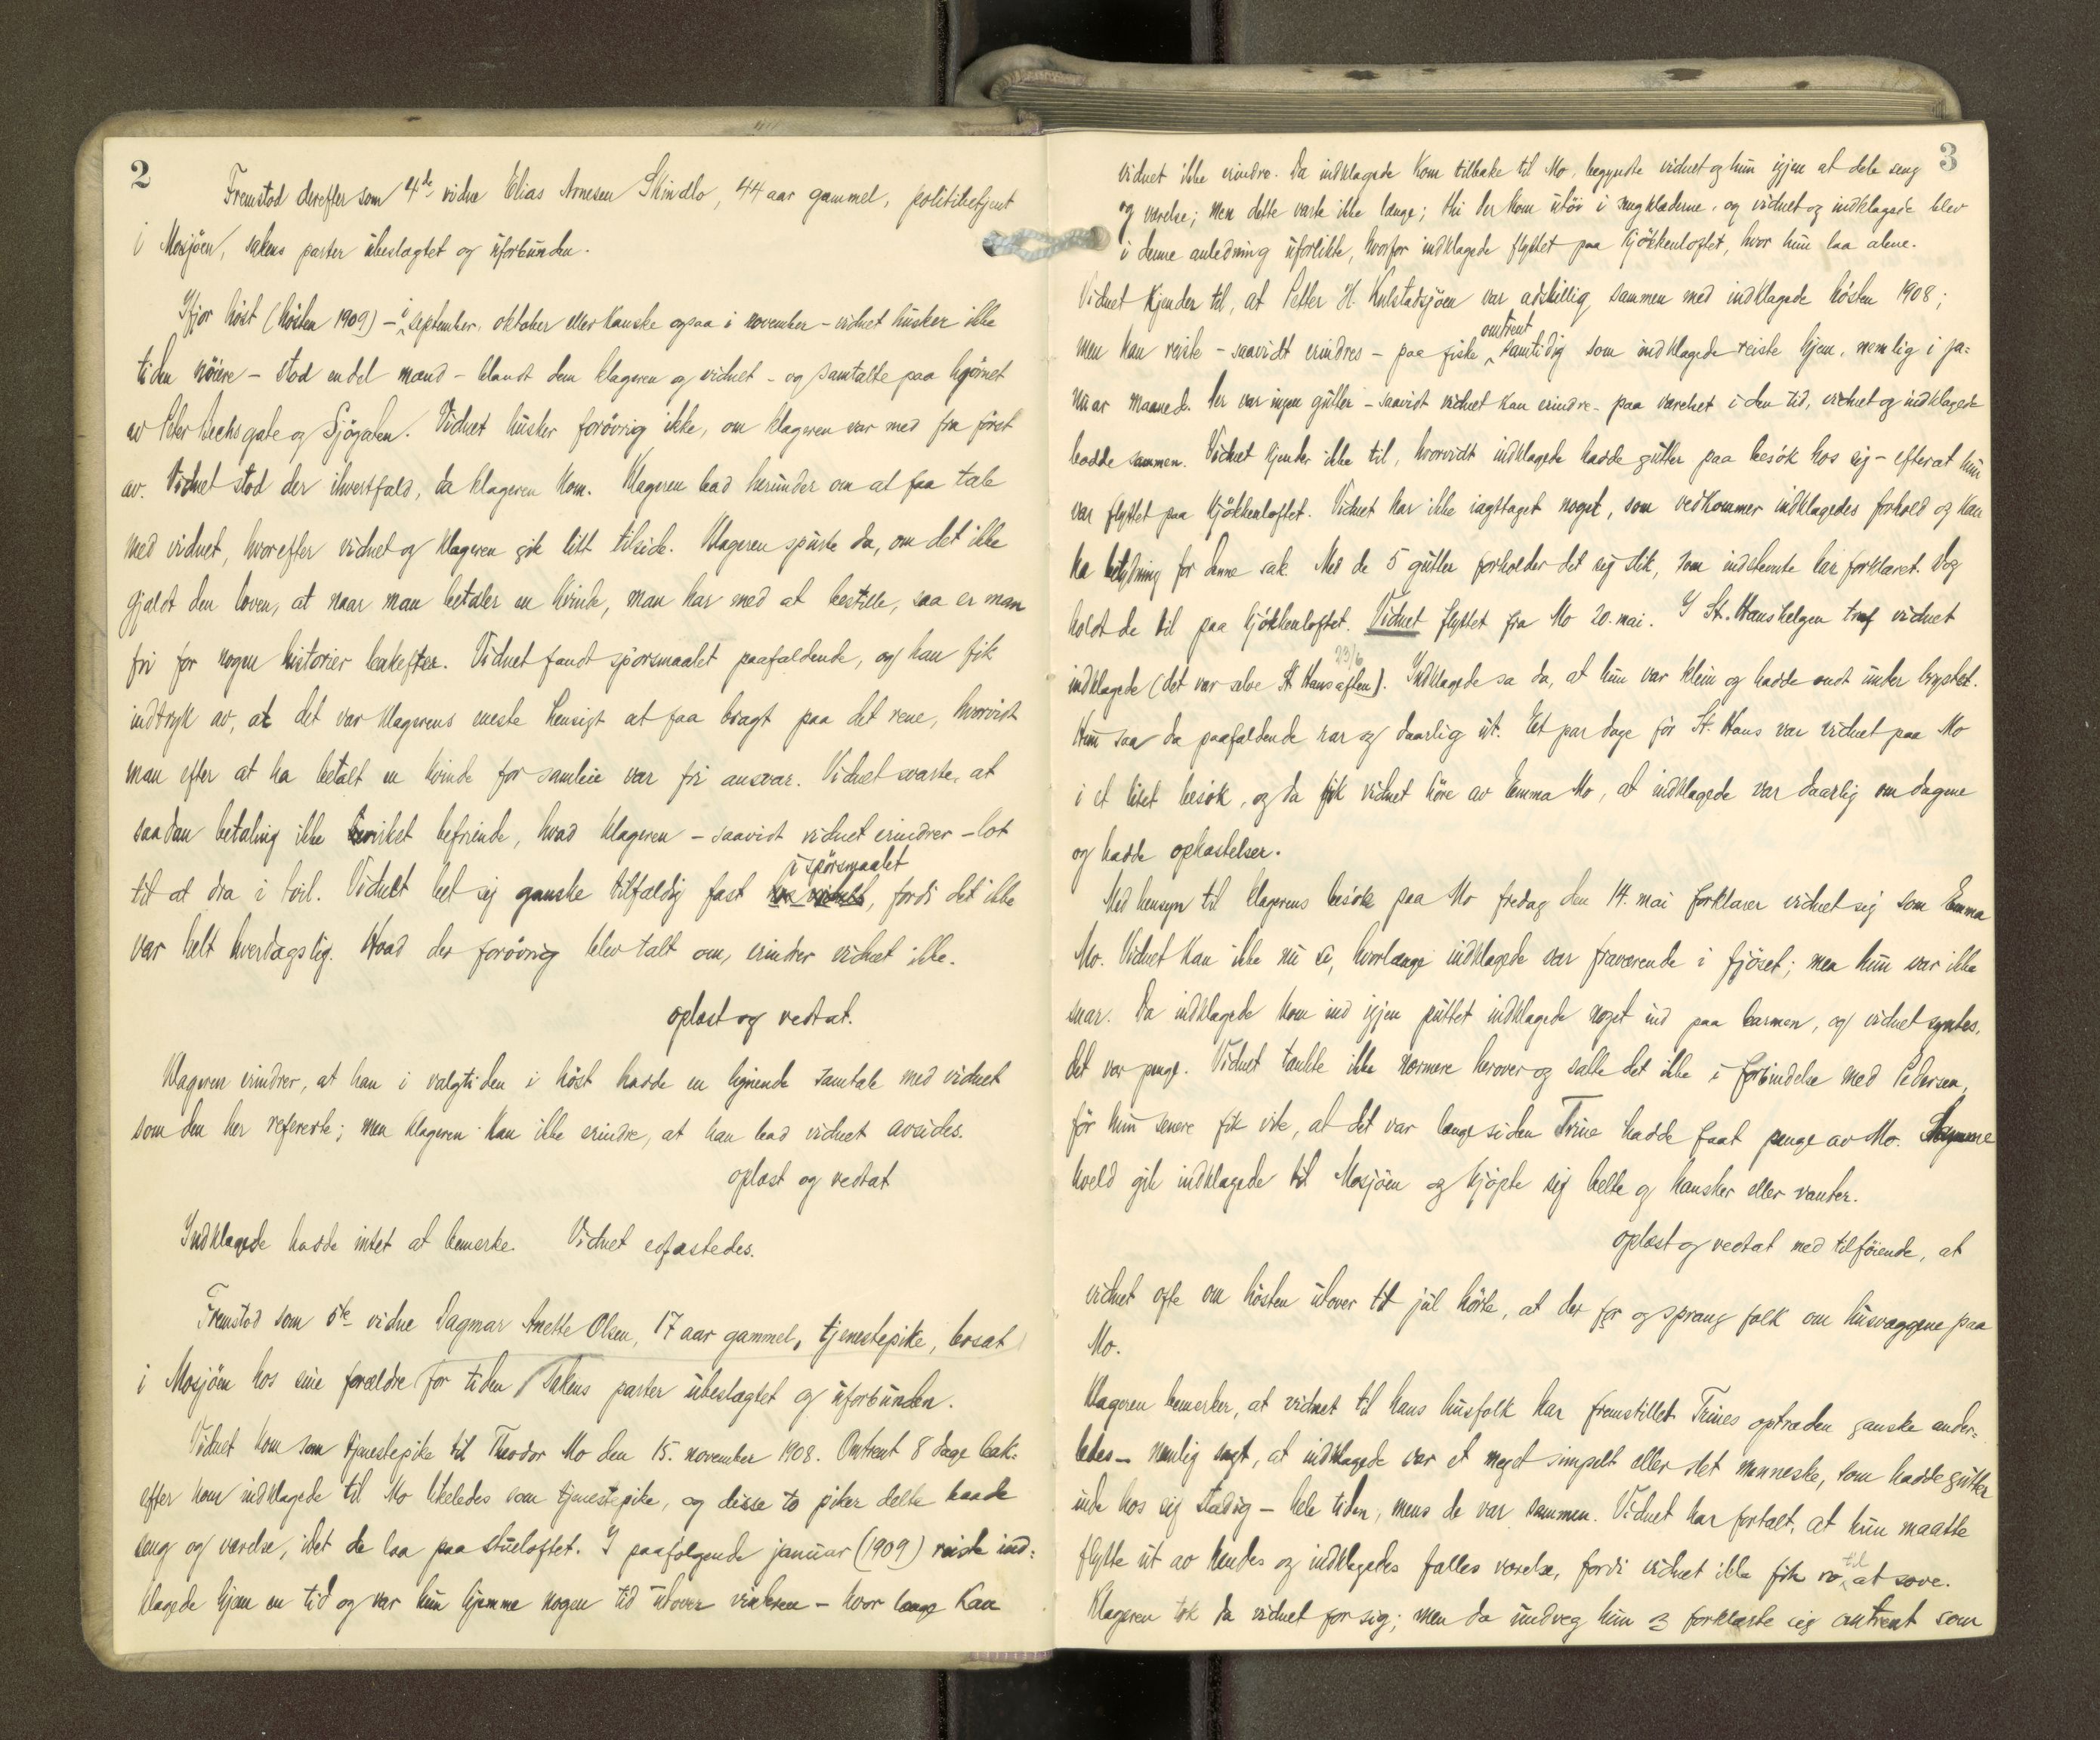 2
Fremstod derefter som 4de vidne Elias Arnesen Skindlo, 44 aar gammel, politibetjent
i Mosjöen, sakens parter ubeslægtet og uforbunden.
Ifjor höst (hösten 1909) – i september, oktober eller kanske ogsaa i november – vidnet husker ikke
tiden nöiere – stod endel mænd – blandt dem klageren og vidnet – og samtalte paa hjörnet
av Peter Bechs gate og Sjögaten. Vidnet husker forövrig ikke, om klageren var med fra först
av. Vidnet stod der ihvertfald, da klageren kom. Klageren bad herunder om at faa tale
med vidnet, hvorefter vidnet og klageren gik litt tilside. Klageren spurte da, om det ikke
gjaldt den loven, at naar man betaler en kvinde, man har med at bestille, saa er man
fri for nogen historier bakefter. Vidnet fandt spörsmaalet paafaldende, og han fik
indtryk av, at det var klagerens eneste hensigt at faa bragt paa det rene, hvorvidt
man efter at ha betalt en kvinde for samleie var fri ansvar. Vidnet svarte, at
saadan betaling ikke virket befriende, hvad klageren – saavidt vidnet erindrer – lot
til at dra i tvil. Vidnet bet sig ganske tilfældig fast i spörsmaalet, fordi det ikke
var helt hverdagslig. Hvad der forövrig blev talt om, erindrer vidnet ikke.
oplæst og vedtat.
Klageren erindrer, at han i valgtiden i höst hadde en lignende samtale med vidnet
som den her refererte; men klageren kan ikke erindre, at han bad vidnet avsides.
oplæst og vedtat
Indklagede hadde intet at bemerke. Vidnet edfæstedes.
Fremstod som 5te vidne Dagmar Anette Olsen, 17 aar gammel, tjenestepike, bosat
i Mosjöen hos sine forældre for tiden, sakens parter ubeslægtet og uforbunden.
Vidnet kom som tjenestepike til Theodor Mo den 15. november 1908. Omtrent 8 dage bak-
efter kom indklagede til Mo likeledes som tjenestepike, og disse to piker delte baade
seng og værelse, idet de laa paa stueloftet. I paafølgende januar (1909) reiste ind-
klagede hjem en tid og var hun hjemme nogen tid utover vinteren – hvor længe kan
3
vidnet ikke erindre. Da indklagede kom tilbake til Mo, begyndte vidnet og hun igjen at dele seng
og værelse; men dette varte ikke længe; thi der kom utöi i sengklæderne, og vidnet og indklagede blev
i denne anledning uforlikte, hvorfor indklagede flyttet paa kjökkenloftet, hvor hun laa alene.
Vidnet kjender til, at Petter H. Kulstadsjöen var adskillig sammen med indklagede hösten 1908;
men han reiste – saavidt erindres – paa fiske omtrent samtidig som indklagede reiste hjem, nemlig i ja-
nuar maaned. Der var ingen gutter – saavidt vidnet kan erindre – paa værelset i den tid, vidnet og indklagede
bodde sammen. Vidnet kjender ikke til, hvorvidt indklagede hadde gutter paa besök hos sig – efterat hun
var flyttet paa kjökkenloftet. Vidnet har ikke iagttaget noget, som vedkommer indklagedes forhold og kan
ha betydning for denne sak. Med de 5 gutter forholder det sig slik, som indstevnte har forklaret. Dog
holdt de til paa kjökkenloftet. Vidnet flyttet fra Mo 20. mai. I St. Hanshelgen traf vidnet
23/6
indklagede (det var selve St Hansaften). Indklagede sa da, at hun var klein og hadde ondt under brystet.
Hun saa da paafaldende rar og daarlig ut. Et par dage för St. Hans var vidnet paa Mo
i et litet besök, og da fik vidnet höre av Emma Mo, at indklagede var daarlig om dagene
og hadde opkastelser.
Med hensyn til klagerens besök paa Mo fredag den 14. mai forklarer vidnet sig som Emma
Mo. Vidnet kan ikke nu si, hvorlænge indklagede var fraværende i fjöset; men hun var ikke
snar. Da indklagede kom ind igjen puttet indklagede noget ind paa barmen, og vidnet syntes,
det var penge. Vidnet tænkte ikke nærmere herover og satte det ikke i forbindelse med Pedersen,
för hun senere fik vite, at det var længe siden Trine hadde faat penge av Mo. Samme
kveld gik indklagede til Mosjöen og kjöpte sig belte og hansker eller vanter.
oplæst og vedtat med tilföiende, at
vidnet ofte om hösten utover til jul hörte, at der for og sprang folk om husvæggene paa
Mo.
Klageren bemerker, at vidnet til hans husfolk har fremstillet Trines optræden ganske ander-
ledes – nemlig sagt, at indklagede var et meget simpelt eller slet menneske, som hadde gutter
inde hos sig stadig – hele tiden, mens de var sammen. Vidnet har fortalt, at hun maatte
flytte ut av hendes og indklagedes fælles værelse, fordi vidnet ikke fik ro til at sove.
Klageren tok da vidnet for sig; men da undveg hun og forklarte sig omtrent som